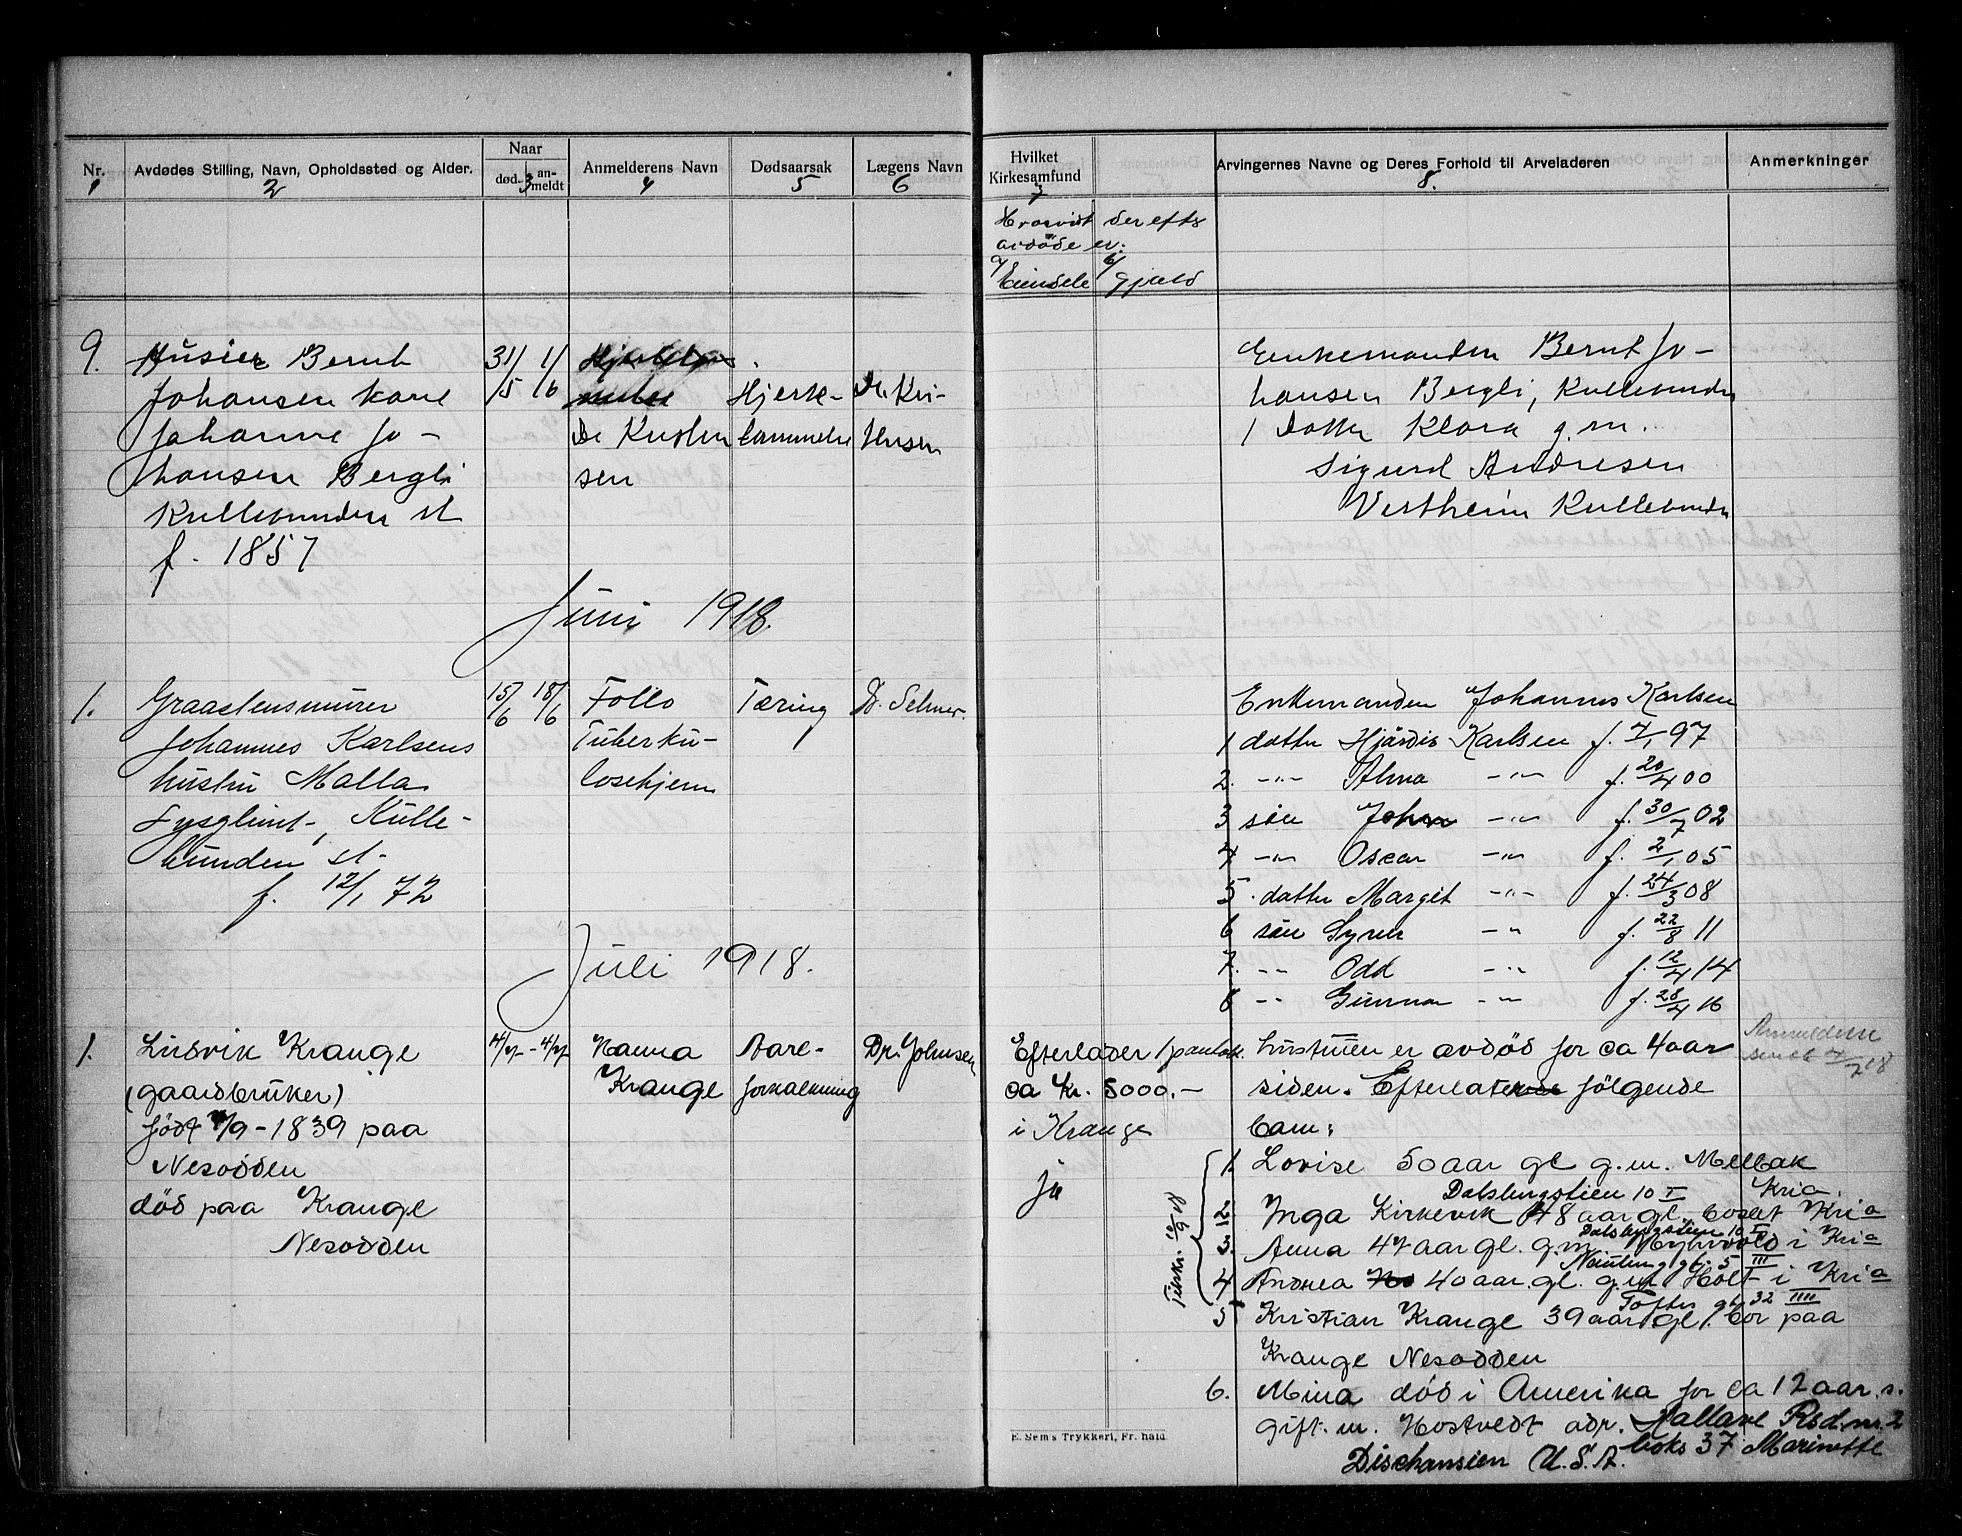 Nr. Avdødes Stilling, Navn, Opholdssted og Alder. Naar død- an-meldt Anmelderens Navn Dødsaarsak Lægens Navn
1 2 3 4 5 6
9. Musiker Bernt
Johansen kone
Johanne Jo-
hansen Bergli
Kullebunden st
f. 1857
31/5 1/6
De Kristen
sen
Hjerte-
lammelse
Dr. Kri-
stensen
Juni 1918.
1. Graastensmurer
Johannes Karlsens
hustru Malla
Lysglimt, Kulle-
bunden st.
f. 12/1 72
15/6 18/6
Follo
Tuberku-
losehjem
Tæring
D. Selmer.
Juli 1918.
1. Ludvik Krange
(gaardbruker)
født 7/9-1839 paa
Nesodden
død paa Krange
Nesodden
4/7-4/7
Hanna
Krange
Aare-
forkalkning
Dr. Johnsen
Hvilket Kirkesamfund Arvingernes Navne og Deres Forhold til Arveladeren Anmerkninger
7 8.
Hvorvidt der efts
avdøde er:
a/ Eiendele b/ Gjæld
Enkemanden Bernt Jo-
hansen Bergli, Kullebunden
1 Datter Klara g.m.
Sigurd Andresen
Vestheim Kullebunden
Enkemanden Johannes Karlsen
1 datter Hjørdis Karlsen f. 7/1 97
2. -"- Alma -"- f. 20/4 00
3 søn John -"- f. 30/7 02
4 -"- Oscar -"- f. 2/1 05
5. datter Margit -"- f. 24/3 08
6 søn Syver -"- f. 22/8 11
7. -"- Odd -"- f. 12/4 14
8 -"- Gunnar -"- f. 28/4 16
Efterlader 1 pantob.
ca Kr. 5000.-
i Krange
ja
Hustruen er avdød for ca 4 aar
siden. Efterlater følgende
barn:
Anmeldelse
sendt 4/7 18
1. Lovise 50 aar gl g.m. Melbak
Dalsbergstien 10 I Kria.
2. Inga Kirkevik 48 aar gl. bosat Kria
Dalsbergstien 10 I
3. Anna 47 aar gl. g.m. Myhrvold i Kria
5 III
4 Andrea 40 aar gl. g.m Holt i Kria
Toftes gt. 32 IIII
5 Kristian Krange 39 aar gl. bor paa
Krange Nesodden
6. Mina død i Amerika for ca 12 aar s.
gift. m. Hostvedt adr. Rsd. nr. 2
boks 37 Marinette
U.S.A.
E. Sem's Trykkeri, Fr. hald.